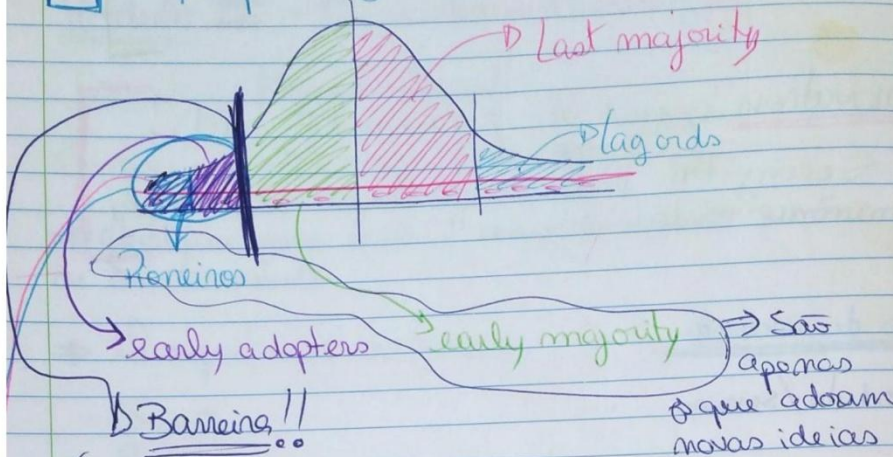 Last majority
lagards
Pioneiros
early adopters
early majority
⇒ São
apenas
os que adoram
novas ideias
Barreira!!